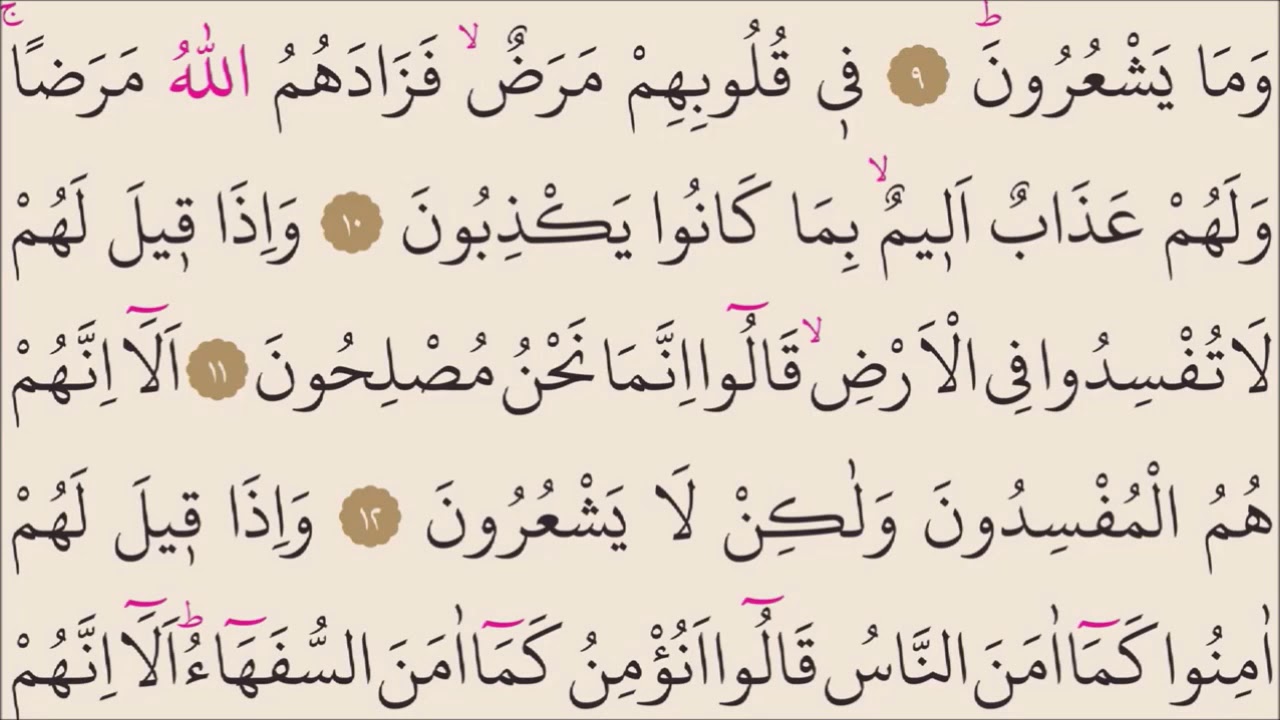 وَمَا يَشْعُرُونَۜ ﴿٩﴾ ف۪ي قُلُوبِهِمْ مَرَضٌۙ فَزَادَهُمُ اللّٰهُ مَرَضًاۚ
وَلَهُمْ عَذَابٌ اَل۪يمٌۙ بِمَا كَانُوا يَكْذِبُونَ ﴿١٠﴾ وَاِذَا ق۪يلَ لَهُمْ
لَا تُفْسِدُوا فِي الْاَرْضِۙ قَالُٓوا اِنَّمَا نَحْنُ مُصْلِحُونَ ﴿١١﴾ اَلَٓا اِنَّهُمْ
هُمُ الْمُفْسِدُونَ وَلٰكِنْ لَا يَشْعُرُونَ ﴿١٢﴾ وَاِذَا ق۪يلَ لَهُمْ
اٰمِنُوا كَمَٓا اٰمَنَ النَّاسُ قَالُٓوا اَنُؤْمِنُ كَمَٓا اٰمَنَ السُّفَهَٓاءُۜ اَلَٓا اِنَّهُمْ